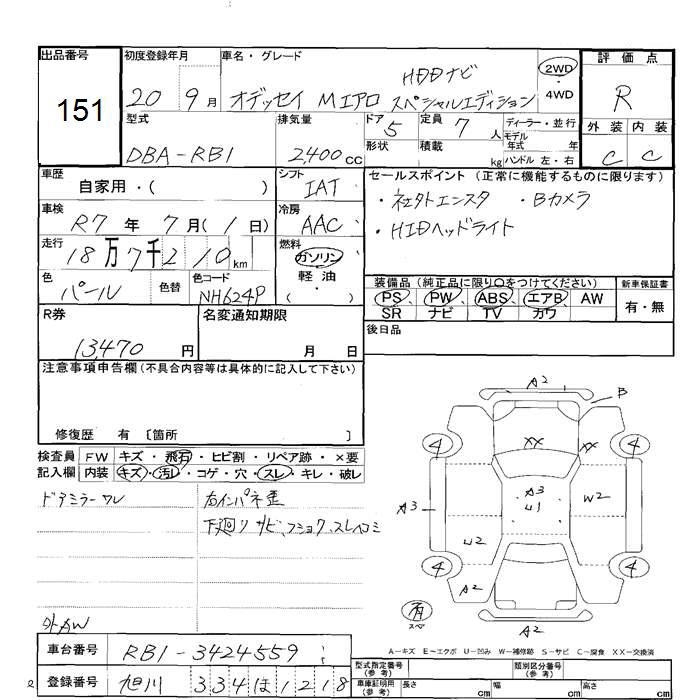 出品番号 151
初度登録年月 20 9月
車名・グレード HDDナビ オデッセイ Mエアロ スペシャルエディション
2WD
4WD
評価点 R
外装 内装
C C
型式 DBA-RB1
排気量 2,400cc
ドア 5
形状
定員 7人
積載 kg
ディーラー・並行
モデル年式 年
ハンドル 左・右
車歴 自家用・( )
シフト IAT
セールスポイント (正常に機能するものに限ります)
・社外エンスタ ・Bカメラ
・HIDヘッドライト
車検 R7年 7月(1日)
冷房 AAC
走行 18万7千210km
燃料 ガソリン
軽油
色 パール 色替
色コード NH624P
装備品(純正品に限り○をつけてください)
PS、PW、ABS、エアB、AW
SR ナビ TV カワ
新車保証書
有・無
R券 13,470円
名変通知期限 月 日
後日品
注意事項申告欄(不具合内容等は具体的に記入して下さい)
修復歴 有 〔箇所 〕
検査員記入欄
FW キズ・飛石・ヒビ割・リペア跡・×要
内装 キズ・汚レ・コゲ・穴・スレ・キレ・破レ
ドアミラーワレ
右インパネ歪
下廻りサビ、フショク、スレヘコミ
外AW
A2
B
4 XX XX 4
A3 A3 W2
U1
U2
4 4
A2
有
スペア
A2
A－キズ E－エクボ U－凹み W－補修跡 S－サビ C－腐食 XX－交換済
車台番号 RB1-3424559
登録番号 旭川 334 ほ 1218
型式指定番号(参考)
類別区分番号(参考)
車庫証明用(参考) 長さ cm 幅 cm 高さ cm